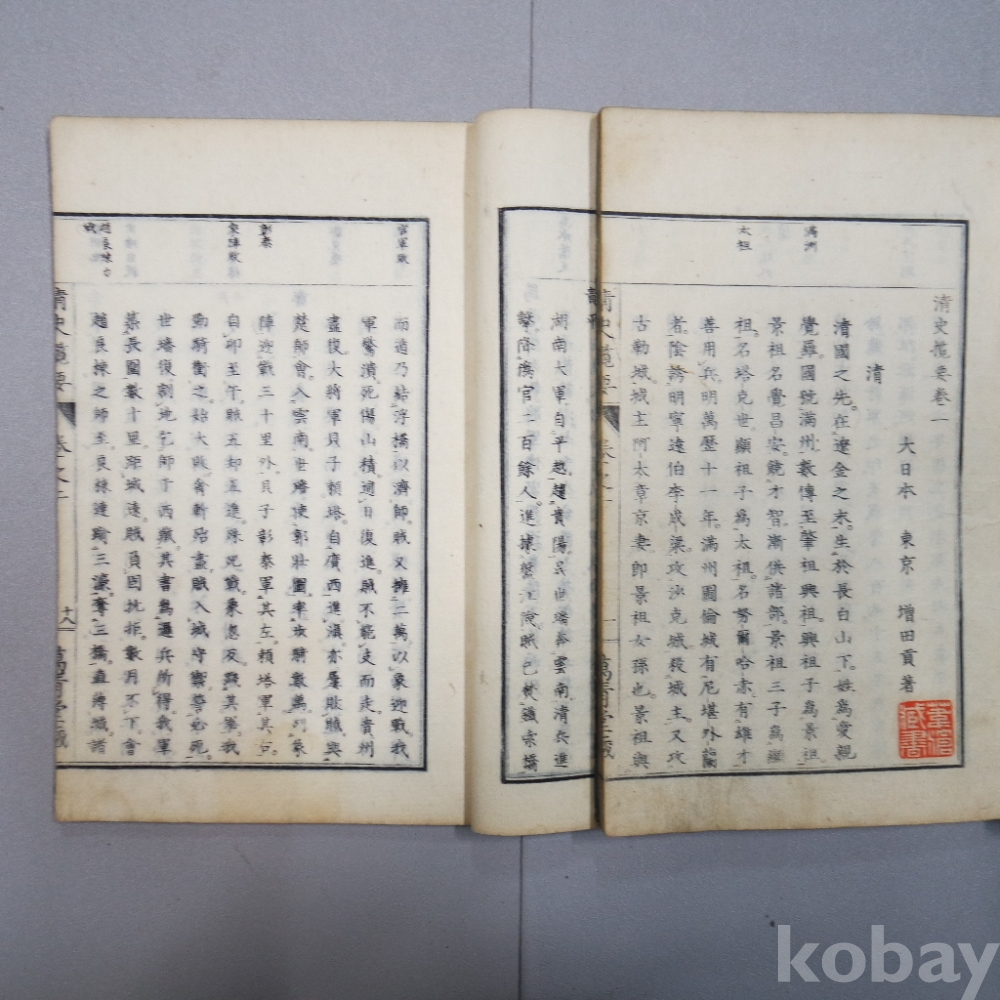 清史攬要卷一
大日本 東京 增田貢著
清
滿洲
太祖
清國之先。在遼金之末。生於長白山下。姓為愛親
覺羅。國號滿州。數傳至肇祖興祖。興祖子為景祖。
景祖名覺昌安。饒才智。漸供諸部。景祖三子為顯
祖。名塔克世。顯祖子為太祖。名努爾哈赤。有雄才
善用兵。明萬歷十一年。滿州圖倫城有尼堪外蘭
者。陰誘明寧遠伯李成梁。攻沁克城。殺城主。又攻
古勒城。城主阿太章京妻。即景祖女孫也。景祖與
湖南大軍自平越。趨貴陽。吳世璠奔雲南。清兵進
擊。降偽官二百餘人。進據盤江阪。賊已焚鐵索橋
官軍敗
彰泰
象陣敗
趙良棟力
戰
而遁。乃結浮橋以濟師。賊又擁二萬。以象迎戰。我
軍驚潰。死傷山積。週日復進。賊不能支而走。貴州
盡復。大將軍貝子賴塔。自廣西進滇。亦屢敗賊。與
楚師會。入雲南。世璠使郭壯圖。率步騎數萬。列象
陣迎戰三十里外。貝子彰泰軍其左。賴塔軍其右。
自卯至午。賊五却五進。殊死戰。象反。躪其軍。我
勁騎衝之。始大敗。禽斬殆盡。賊入城守禦益必死。
世璠復割地乞師于西藏。其書為邏兵所得。我軍
築長圍數十里。距城遠。賊負固抗拒。數月不下。會
趙良棟之師至。良棟連踰三濠。奪三橋。直薄城。諸
清史攬要 卷之一 十八
葦滄藏書
kobay